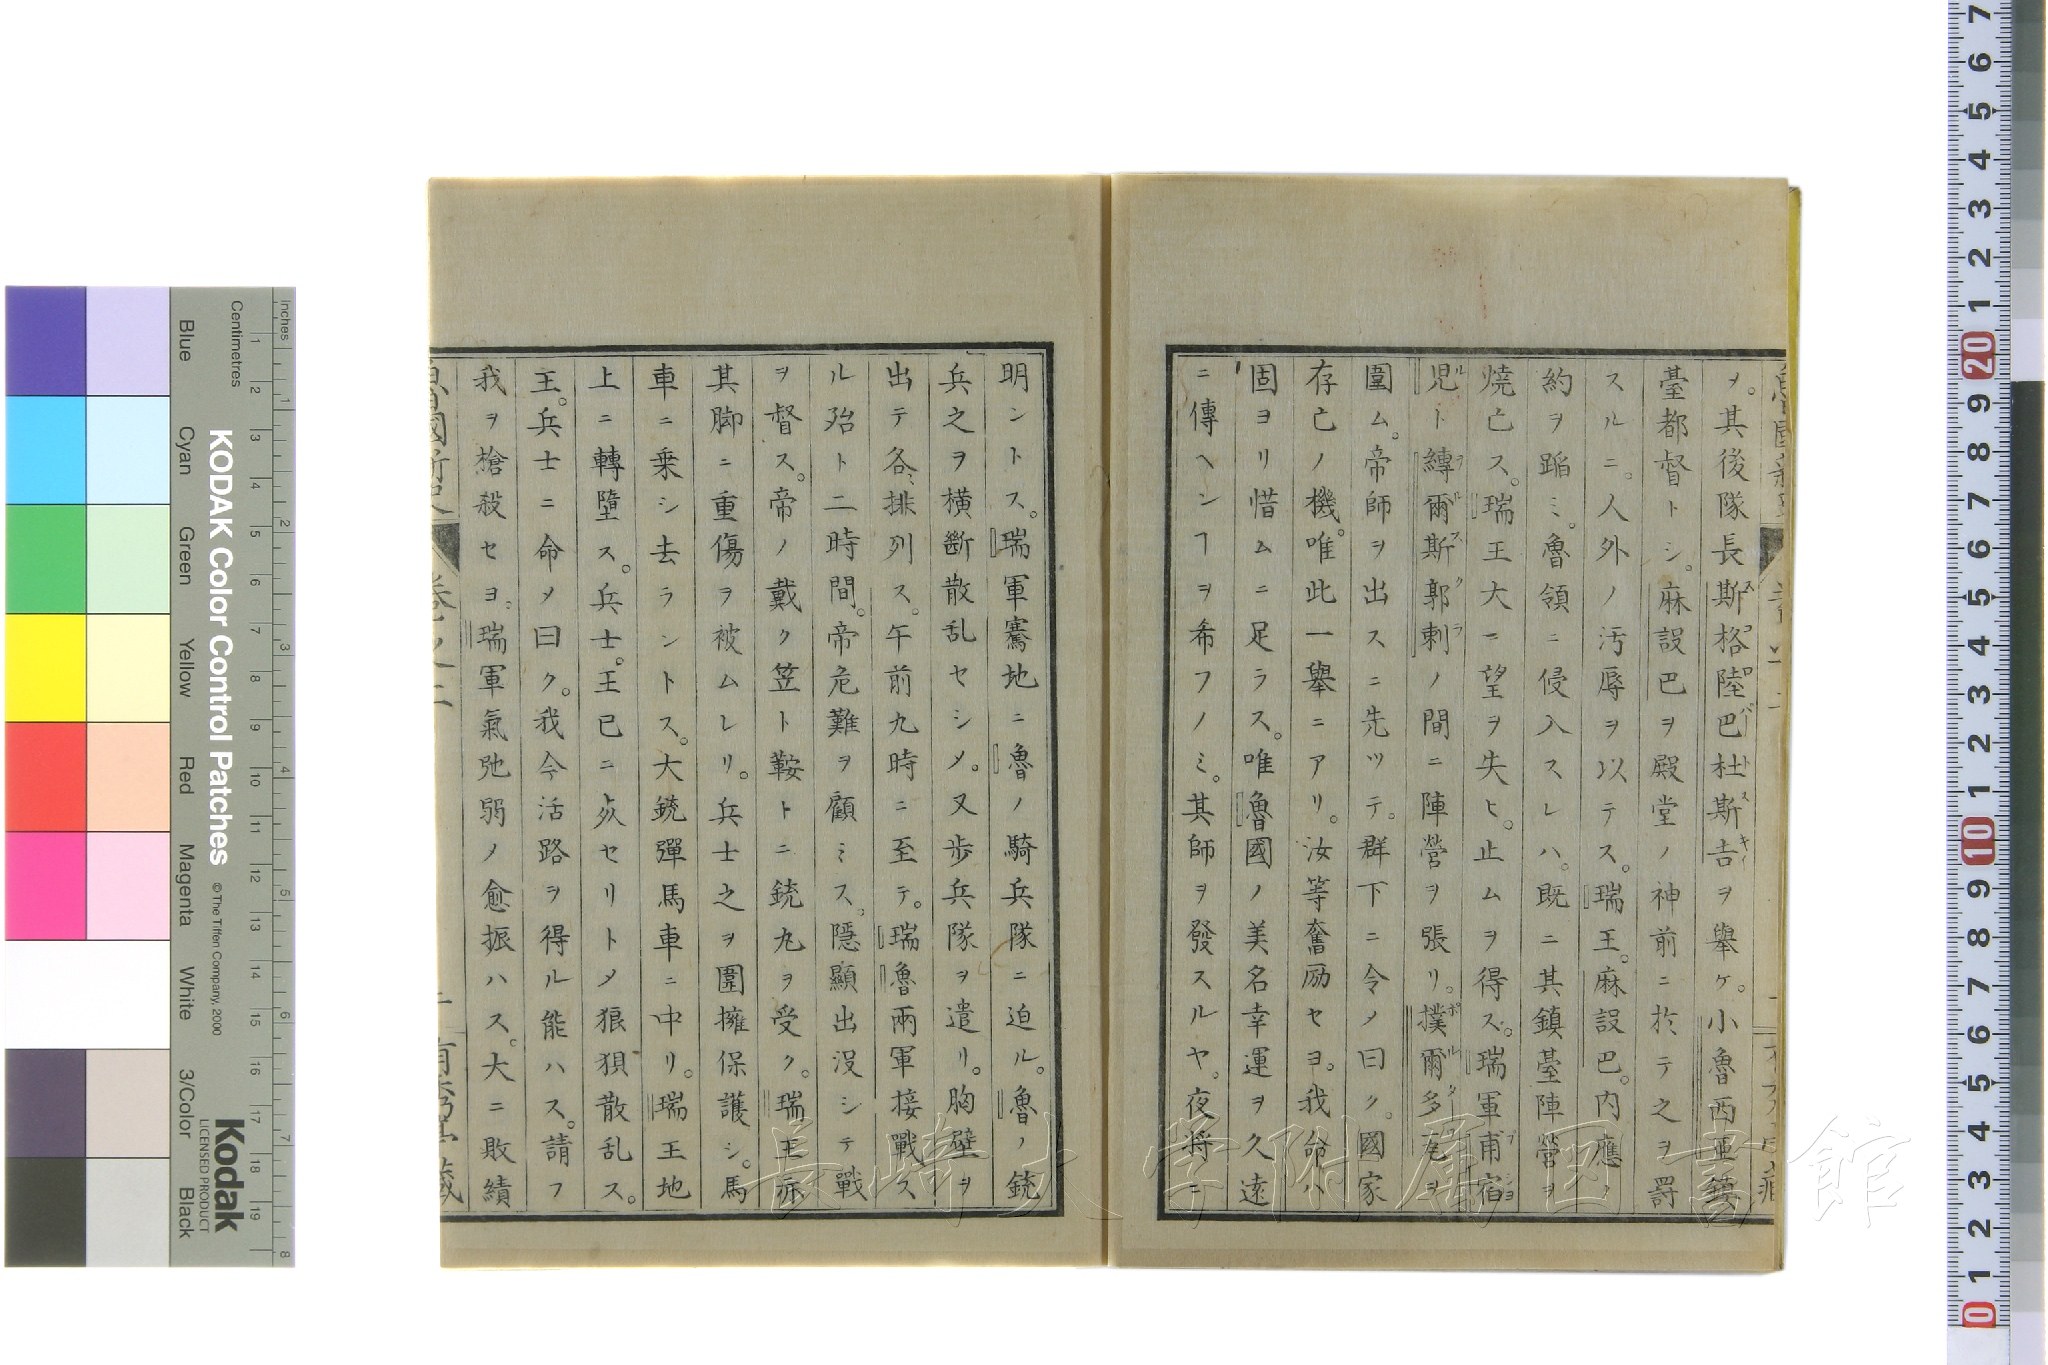 メ。其後隊長斯格陸巴杜斯𠮷ヲ舉ケ。小魯西亜鎮
臺都督トシ。麻設巴ヲ殿堂ノ神前ニ於テ之ヲ詈
スルニ。人外ノ汚辱ヲ以テス。瑞王。麻設巴。内應ノ
約ヲ踰ミ。魯領ニ侵入スレハ。既ニ其鎮臺陣營ヲ
燒亡ス。瑞王大ニ望ヲ失ヒ。止ムヲ得ス。瑞軍甫宿
児ト縳爾斯郭剌ノ間ニ陣營ヲ張リ。撲爾多
圍ム。帝師ヲ出スニ先ツテ。群下ニ令メ曰ク。國家
存亡ノ機。唯此一舉ニアリ。汝等奮励セヨ。我命ハ
固ヨリ惜ムニ足ラス。唯魯國ノ美名幸運ヲ久遠
ニ傳ヘンヿヲ希フノミ。其師ヲ發スルヤ。夜将ニ
明ントス。瑞軍驀地ニ魯ノ騎兵隊ニ迫ル。魯ノ銃
兵之ヲ横斷散乱セシメ。又歩兵隊ヲ遣リ。胸壁ヲ
出テ各〻排列ス。午前九時ニ至テ。瑞魯兩軍接戰ス
ル殆ト二時間。帝危難ヲ顧ミス。隱顯出沒シテ戰
ヲ督ス。帝ノ戴ク笠ト鞍トニ銃丸ヲ受ク。瑞王亦
其脚ニ重傷ヲ被ムレリ。兵士之ヲ圍擁保護シ。馬
車ニ乗シ去ラントス。大銃彈馬車ニ中リ。瑞王地
上ニ轉墮ス。兵士。王已ニ死セリトメ狼狽散乱ス。
王。兵士ニ命メ曰ク。我今活路ヲ得ル能ハス。請フ
我ヲ槍殺セヨ。瑞軍氣弛弱ノ愈振ハス。大ニ敗績
魯國新史 卷之二
長崎大学附属図書館
KODAK Color Control Patches
© The Tiffen Company, 2000
Kodak
LICENSED PRODUCT
Centimetres
Inches
Blue Cyan Green Yellow Red Magenta White 3/Color Black